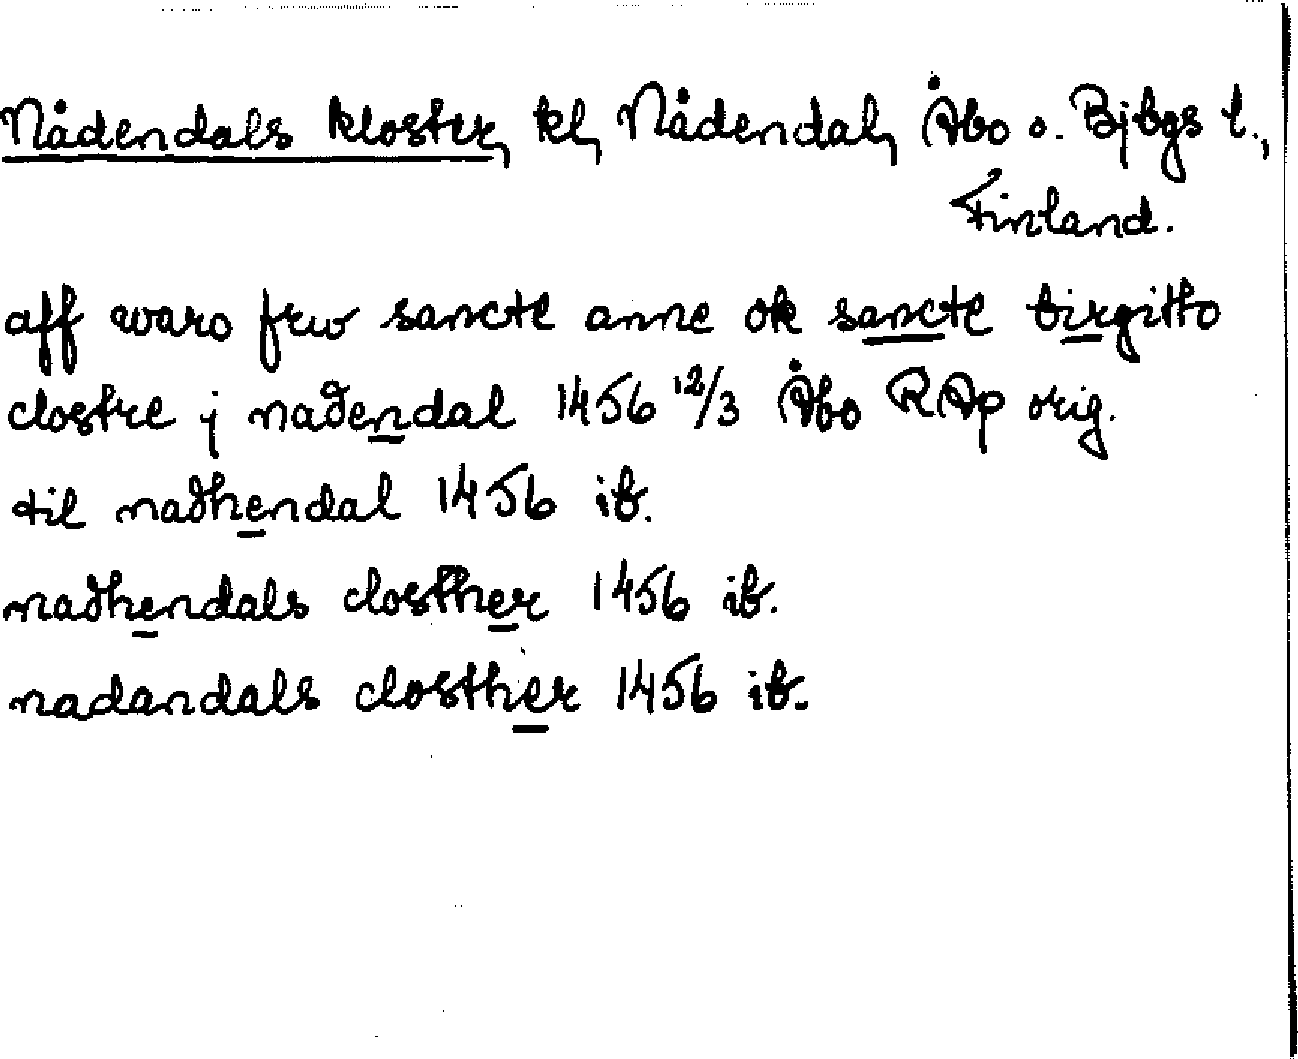 Nådendals kloster, kl, Nådendal, Åbo o. Bjbgs l.,
Finland.
aff waro frw sancte anne ok sancte birgitto
clostre j nađendal 1456 12/3 Åbo RAp orig.
til nađhendal 1456 ib.
nađhendals closther 1456 ib.
nadandals closther 1456 ib.